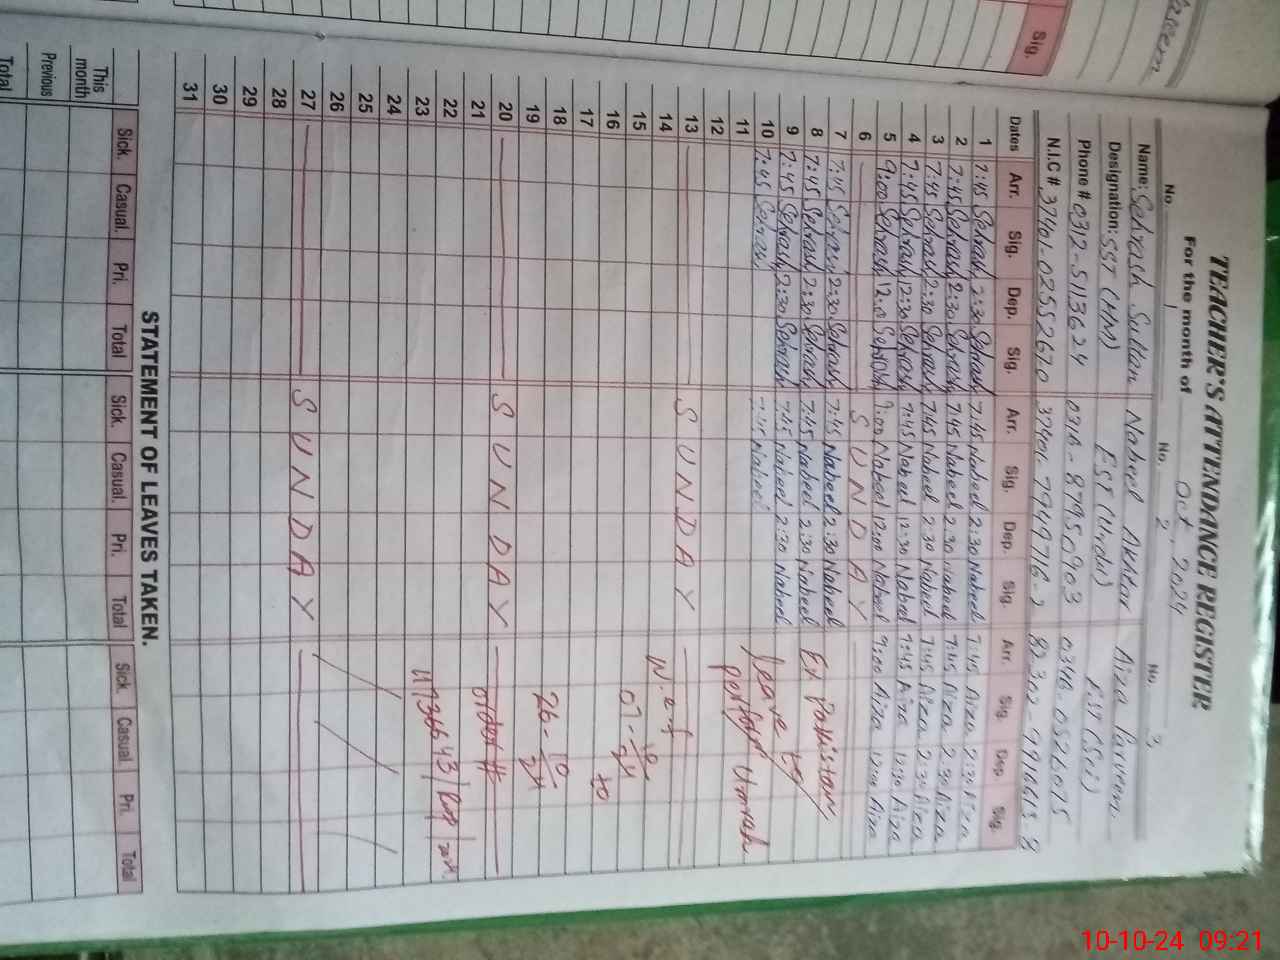 TEACHER'S ATTENDANCE REGISTER
For the month of Oct, 2024
No. 1 No. 2 No. 3
Name: Sehrash Sultan Nabeel Akhtar Aiza Parveen
Designation: SST (HM) EST (Urdu) EST (Sci)
Phone # 0312-5113624 0316-87950903 0348-0526075
N.I.C # 37401-0255267-0 37401-7949716-3 82302-9916613-8
Dates Arr. Sig. Dep. Sig. Arr. Sig. Dep. Sig. Arr. Sig. Dep. Sig.
1 7:45 Sehrash 2:30 Sehrash 7:45 Nabeel 2:30 Nabeel 7:45 Aiza 2:30 Aiza
2 7:45 Sehrash 2:30 Sehrash 7:45 Nabeel 2:30 Nabeel 7:45 Aiza 2:30 Aiza
3 7:45 Sehrash 2:30 Sehrash 7:45 Nabeel 2:30 Nabeel 7:45 Aiza 2:30 Aiza
4 7:45 Sehrash 12:30 Sehrash 7:45 Nabeel 12:30 Nabeel 7:45 Aiza 12:30 Aiza
5 9:00 Sehrash 12:0 Sehrash 9:00 Nabeel 12:00 Nabeel 9:00 Aiza 12:00 Aiza
6 SUNDAY
7 7:45 Sehrash 2:30 Sehrash 7:45 Nabeel 2:30 Nabeel Ex Pakistan
8 7:45 Sehrash 2:30 Sehrash 7:45 Nabeel 2:30 Nabeel
9 7:45 Sehrash 2:30 Sehrash 7:45 Nabeel 2:30 Nabeel leave
10 7:45 Sehrash 7:45 Nabeel perform Umrah
11
12
13 SUNDAY
14 W.e.f
15 07-10/24
16 to
17
18 26-10/24
19
20 SUNDAY
21 order #
22
23
24
25
26
27 SUNDAY
28
29
30
31
STATEMENT OF LEAVES TAKEN.
Sick. Casual. Pri. Total Sick. Casual. Pri. Total Sick Casual Pri. Total
This month
Previous
Total
Sig.
10-10-24 09:21